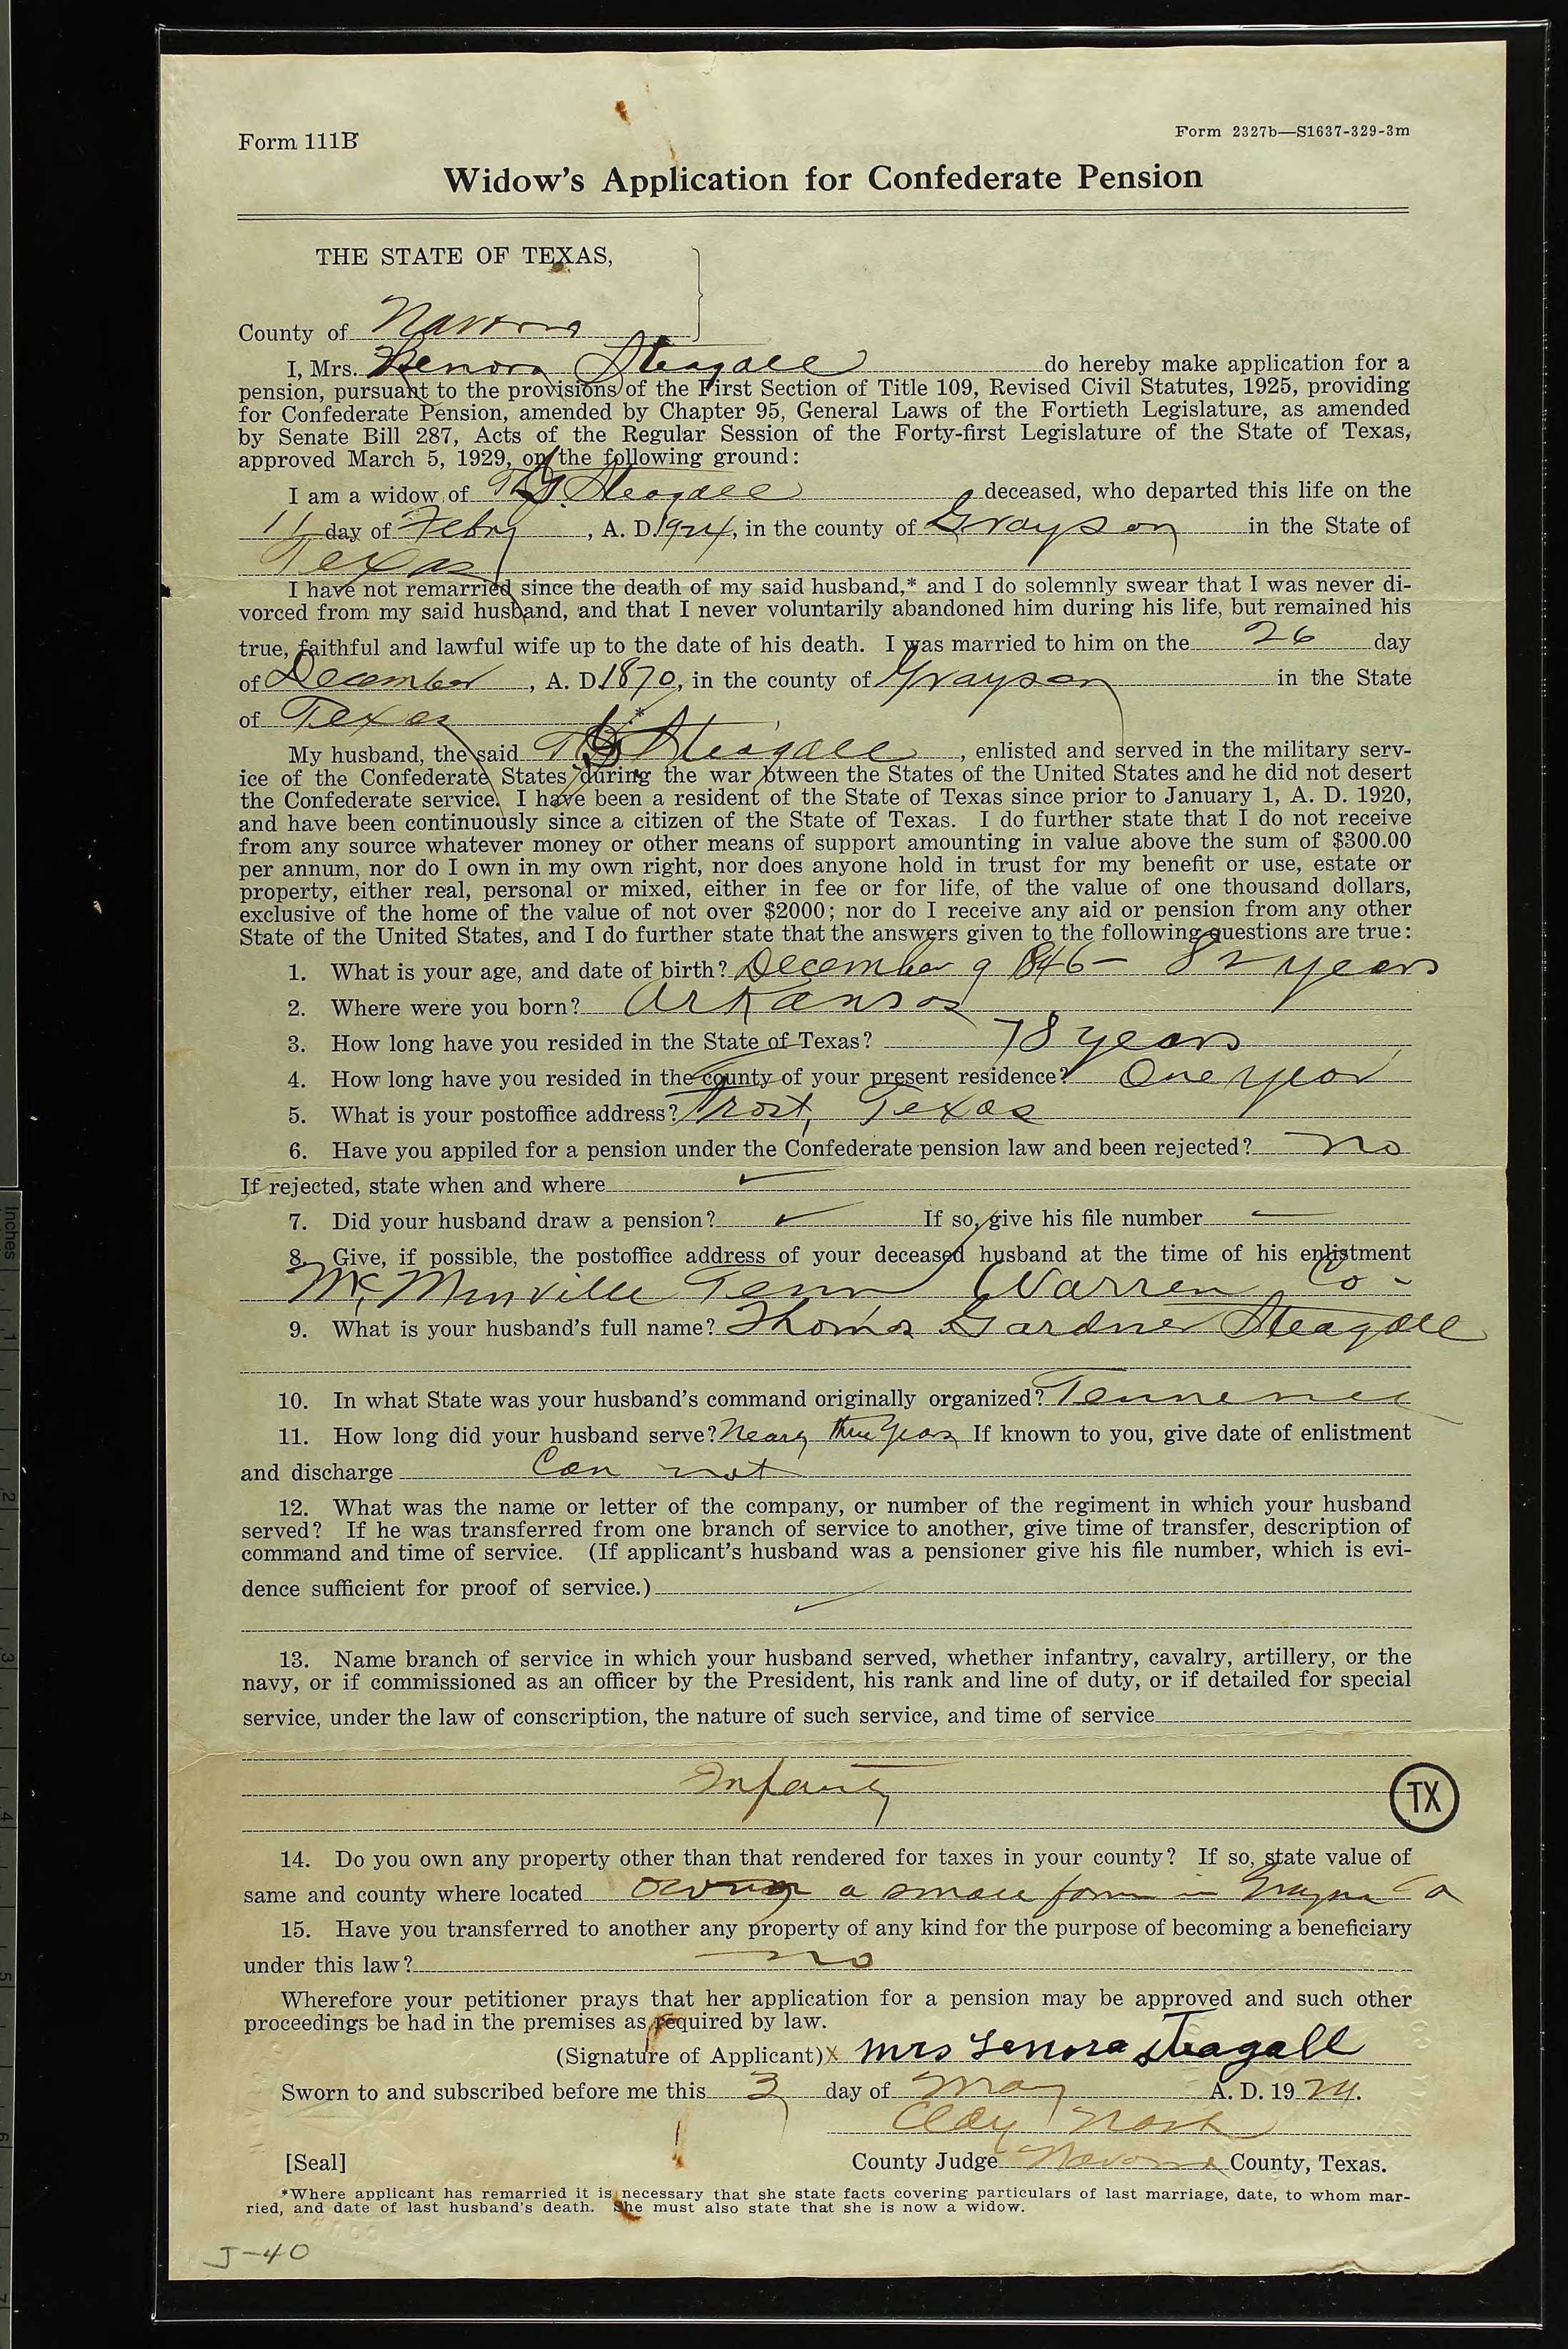 Form 111B
Form 2327b—S1637-329-3m
Widow's Application for Confederate Pension
THE STATE OF TEXAS,
County of Navarro
I, Mrs. Lenora Steagall do hereby make application for a
pension, pursuant to the provisions of the First Section of Title 109, Revised Civil Statutes, 1925, providing
for Confederate Pension, amended by Chapter 95, General Laws of the Fortieth Legislature, as amended
by Senate Bill 287, Acts of the Regular Session of the Forty-first Legislature of the State of Texas,
approved March 5, 1929, on the following ground:
I am a widow of T. G. Steagall deceased, who departed this life on the
11 day of Febry, A. D. 1924, in the county of Grayson in the State of
Texas
I have not remarried since the death of my said husband,* and I do solemnly swear that I was never di-
vorced from my said husband, and that I never voluntarily abandoned him during his life, but remained his
true, faithful and lawful wife up to the date of his death. I was married to him on the 26 day
of December, A. D. 1870, in the county of Grayson in the State
of Texas.*
My husband, the said T G Steagall, enlisted and served in the military serv-
ice of the Confederate States during the war btween the States of the United States and he did not desert
the Confederate service. I have been a resident of the State of Texas since prior to January 1, A. D. 1920,
and have been continuously since a citizen of the State of Texas. I do further state that I do not receive
from any source whatever money or other means of support amounting in value above the sum of $300.00
per annum, nor do I own in my own right, nor does anyone hold in trust for my benefit or use, estate or
property, either real, personal or mixed, either in fee or for life, of the value of one thousand dollars,
exclusive of the home of the value of not over $2000; nor do I receive any aid or pension from any other
State of the United States, and I do further state that the answers given to the following questions are true:
1. What is your age, and date of birth? December 9 1846 – 82 years
2. Where were you born? Arkansas
3. How long have you resided in the State of Texas? 78 years
4. How long have you resided in the county of your present residence? One year
5. What is your postoffice address? Frost, Texas
6. Have you appiled for a pension under the Confederate pension law and been rejected? no
If rejected, state when and where ✓
7. Did your husband draw a pension? ✓ If so, give his file number —
8. Give, if possible, the postoffice address of your deceased husband at the time of his enlistment
McMinville Tenn Warren Co -
9. What is your husband's full name? Thomas Gardner Steagall
10. In what State was your husband's command originally organized? Tennessee
11. How long did your husband serve? Neary three years If known to you, give date of enlistment
and discharge Can not
12. What was the name or letter of the company, or number of the regiment in which your husband
served? If he was transferred from one branch of service to another, give time of transfer, description of
command and time of service. (If applicant's husband was a pensioner give his file number, which is evi-
dence sufficient for proof of service.) ✓
13. Name branch of service in which your husband served, whether infantry, cavalry, artillery, or the
navy, or if commissioned as an officer by the President, his rank and line of duty, or if detailed for special
service, under the law of conscription, the nature of such service, and time of service
Infantry
TX
14. Do you own any property other than that rendered for taxes in your county? If so, state value of
same and county where located a small farm in Grayson Co
15. Have you transferred to another any property of any kind for the purpose of becoming a beneficiary
under this law? no
Wherefore your petitioner prays that her application for a pension may be approved and such other
proceedings be had in the premises as required by law.
(Signature of Applicant) X Mrs Lenora Steagall
Sworn to and subscribed before me this 3 day of May A. D. 19
Clay Nash
[Seal]
County Judge Navarro County, Texas.
*Where applicant has remarried it is necessary that she state facts covering particulars of last marriage, date, to whom mar-
ried, and date of last husband's death. She must also state that she is now a widow.
J-40
Inches
1
2
3
4
5
6
7